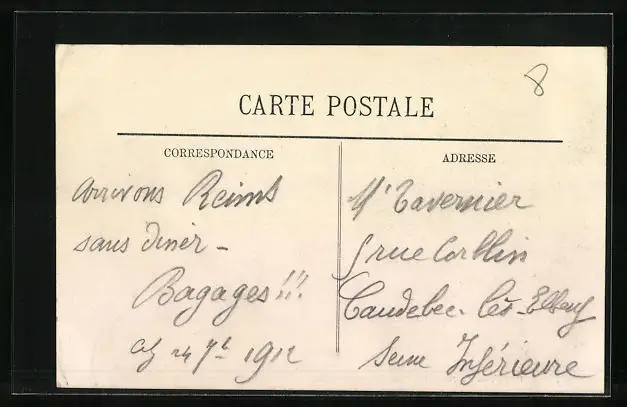 8
CARTE POSTALE
CORRESPONDANCE
arrivons Reims
sans diner -
Bagages !!!
24 7bre 1912
ADRESSE
Mr Tavernier
rue Corblin
Caudebec-lès-Elbeuf
Seine Inférieure